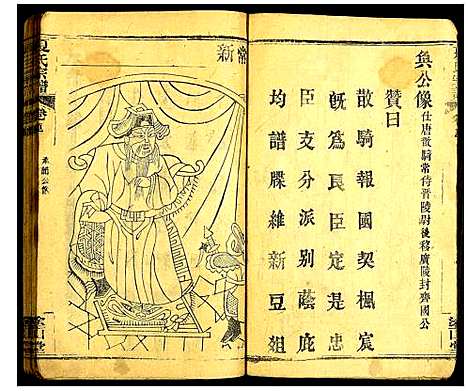 奐公像 仕唐散騎常侍晉陵尉後移廣陵封齊國公
贊曰
散騎報國契楓宸
既為良臣定是忠
臣支分派別蔭庇
均譜牒維新豆俎
常新
夏氏宗譜
卷